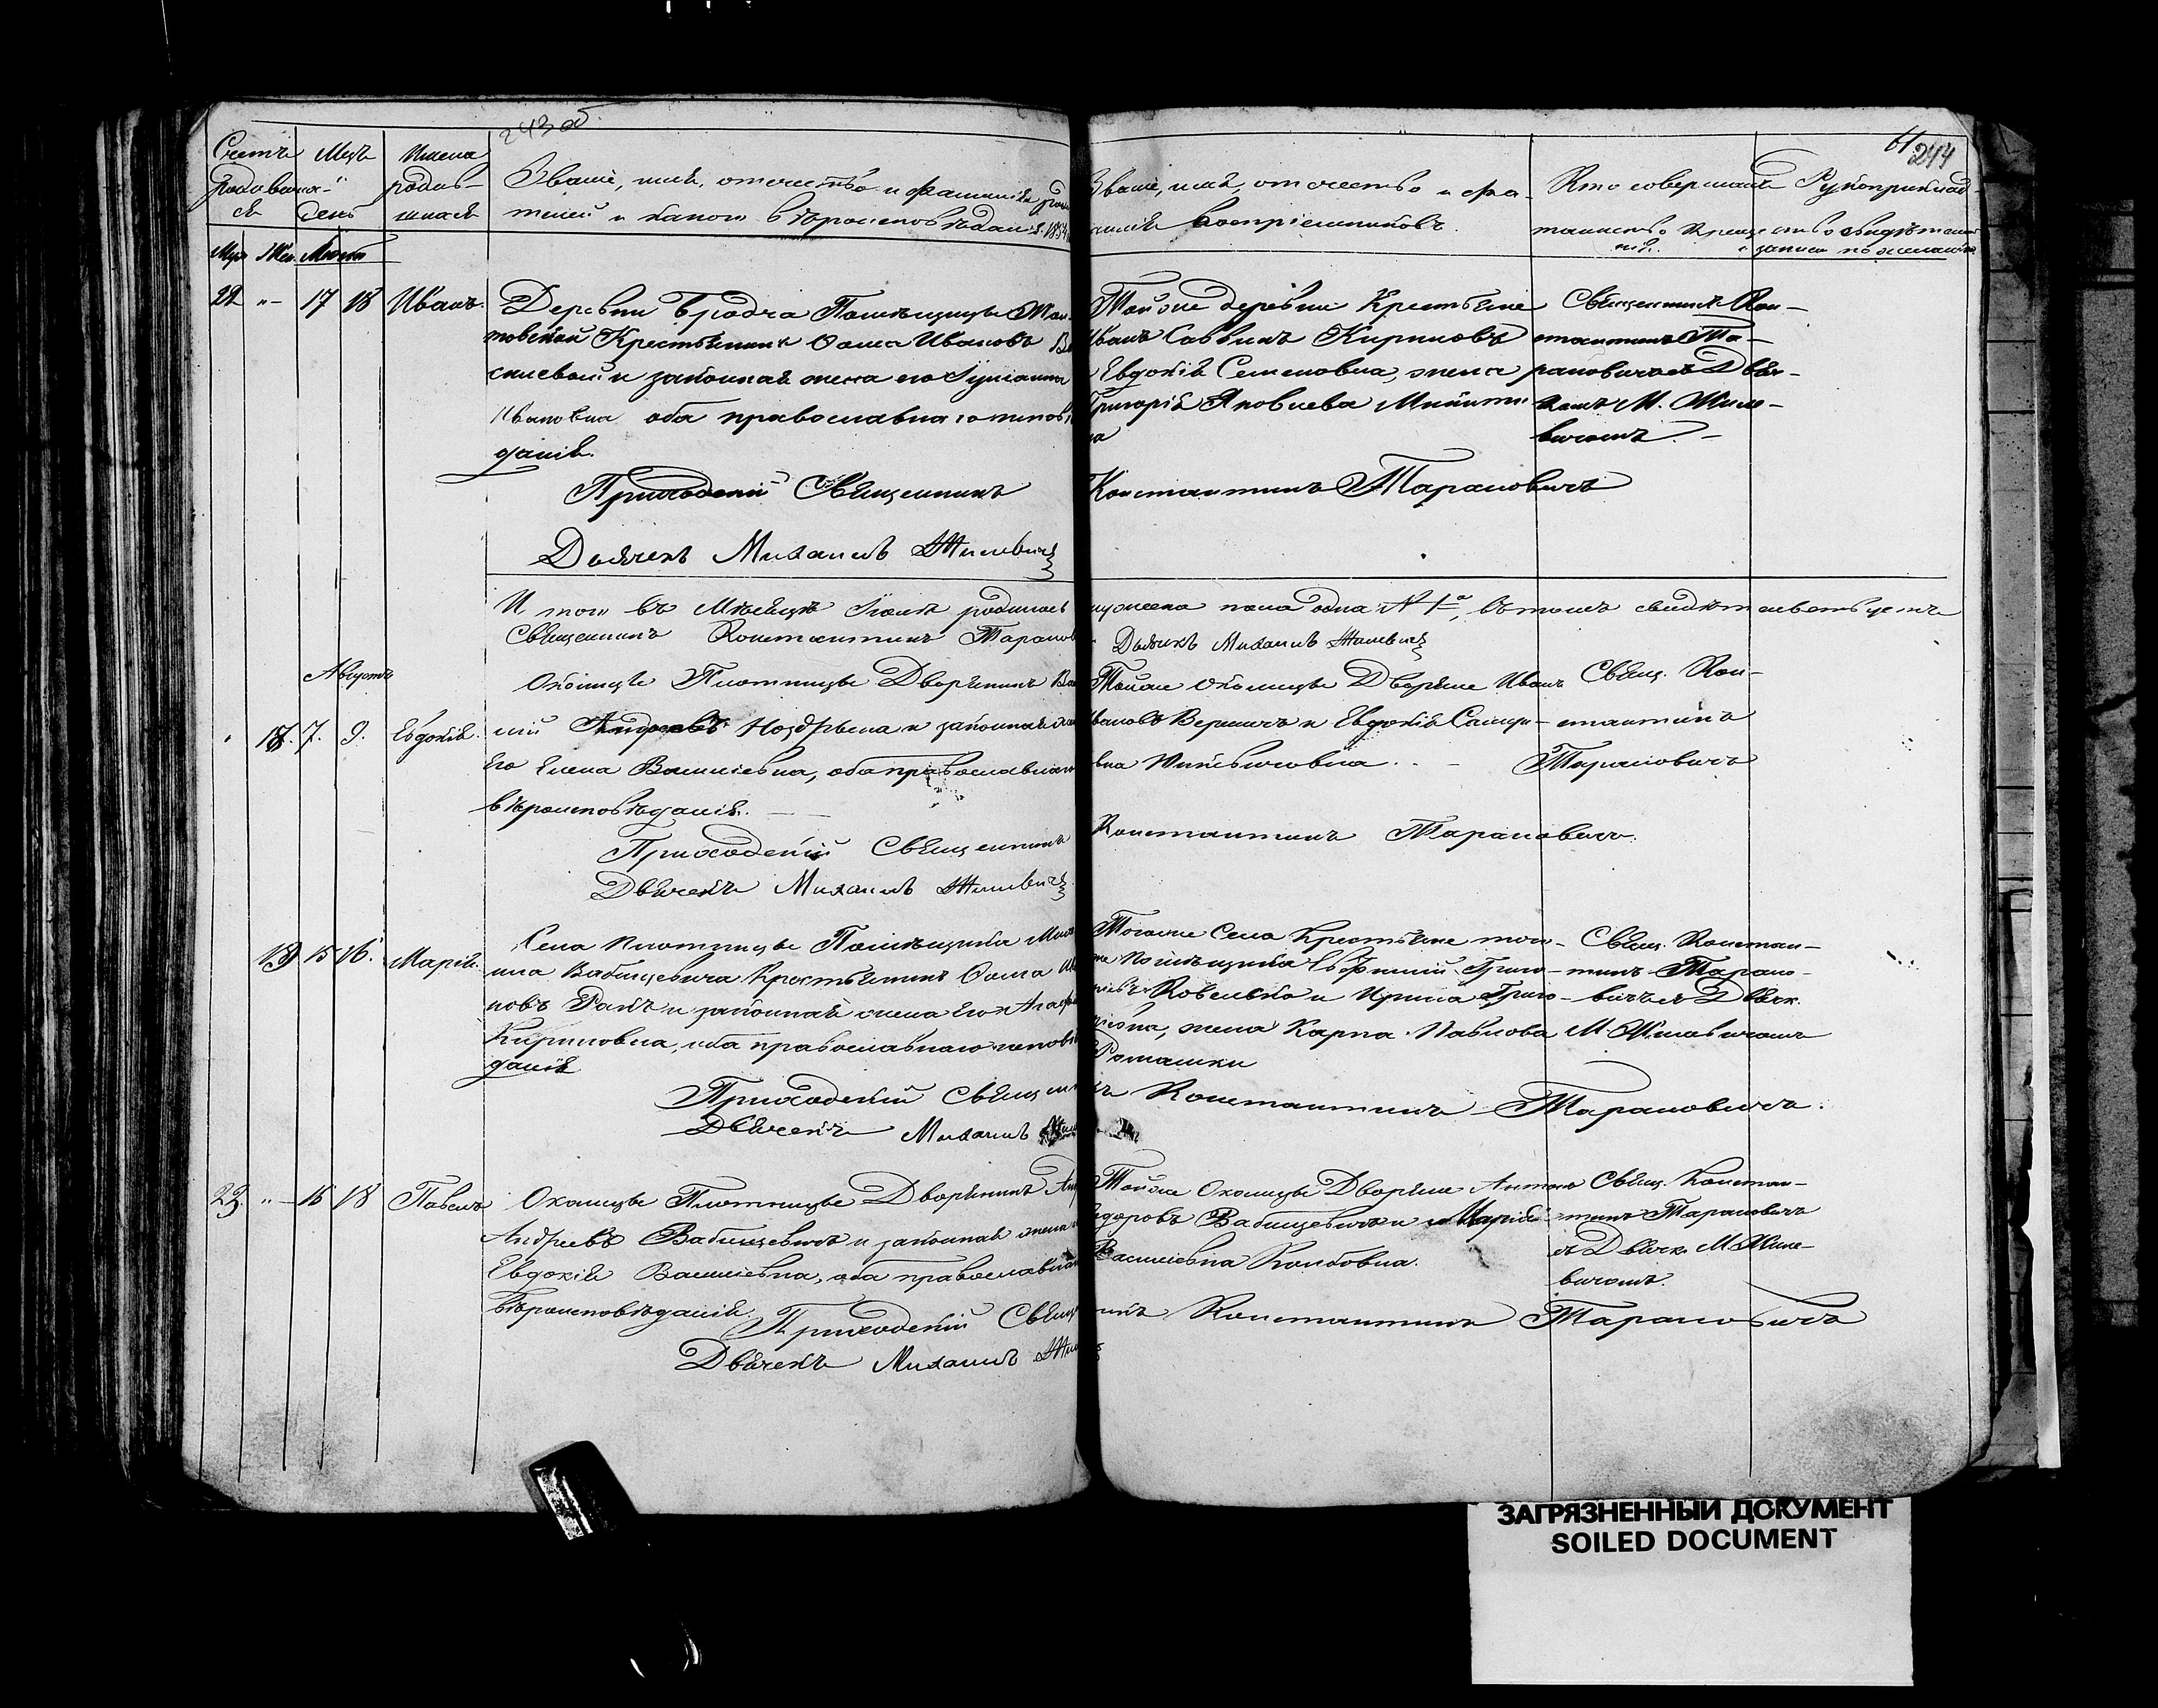 243 об
61
244
Счетъ
Родивших-
ся
Мѣц.
день
Имена
родив-
шихся
Званіе, имя, отчество и фамилія роди
телей и какого вѣроисповѣданія. 1854
Званіе, имя, отчество и фа-
милія воспріемниковъ.
Кто совершалъ
таинство Креще
нія.
Рукоприклад-
ство свидѣтелей
записи по желанію
Муж Жен.
22 "– 17 18 Иванъ.
Деревни Бродча Помѣщицы
товской Крестьянинъ Ѳома Ивановъ
и законная жена его Іуліанна
Ивановна оба православнаго исповѣ
данія.
Тойже деревни Крестьяне
Иванъ Саввинъ Кириловъ
Евдокія Семеновна, жена
Григорія Яковлева
на
Священникъ Кон-
стантинъ Та-
рановичъ съ Дьяч-
комъ М. Жиле-
вичемъ.
Приходскій Священникъ Константинъ Тарановичъ
Дьячекъ Михаилъ Жилевичъ
И того въ Мѣсяцѣ Іюлѣ родилось мужеска пола одна № 1-а, въ томъ свидѣтельствуемъ
Священникъ Константинъ Таранов Дьячекъ Михаилъ Жилевичъ
Августъ
18. 7. 9. Евдокія.
Околицы Плотницы Дворянинъ Ва
лій Андреевъ Ноздрына и законная жен
его Елена Василіевна, оба православнаго
вѣроисповѣданія.
Тойже Околицы Дворяне Иванъ
Ивановъ Вереничъ и Евдокія
вна
Свящ. Кон-
стантинъ
Тарановичъ
Приходскій Священникъ Константинъ Тарановичъ.
Дьячекъ Михаилъ Жилевичъ
19 15 16. Марія.
Села Плотницы Помѣщика Миха
ила Вабищевича Крестьянинъ Ѳома Ива
новъ и законная жена его Агаф
Кириловна, оба православнаго исповѣ
данія
Тогоже Села Крестьяне того-
же Помѣщика Евфимій Григо-
ріевъ Ковелько и Ирина Григо-
ріевна, жена Карпа Павлова
Ромашки
Свящ. Констан-
тинъ Тарано-
вичъ съ Дьячк.
М. Жилевичемъ
Приходскій Священникъ Константинъ Тарановичъ.
Дьячекъ Михаилъ
23. "– 16 18 Павелъ
Околицы Плотницы Дворянинъ
Андреевъ Вабищевичъ и законная жена
Евдокія Василіевна, оба православнаго
вѣроисповѣданія
Тойже Околицы Дворяне Антонъ
Федоровъ Вабищевичъ и Марія
Василіевна Колбовна.
Свящ. Констан-
тинъ Тарановичъ
съ Дьячк. М. Жиле-
вичемъ.
Приходскій Священникъ Константинъ Тарановичъ
Дьячекъ Михаилъ
ЗАГРЯЗНЕННЫЙ ДОКУМЕНТ
SOILED DOCUMENT